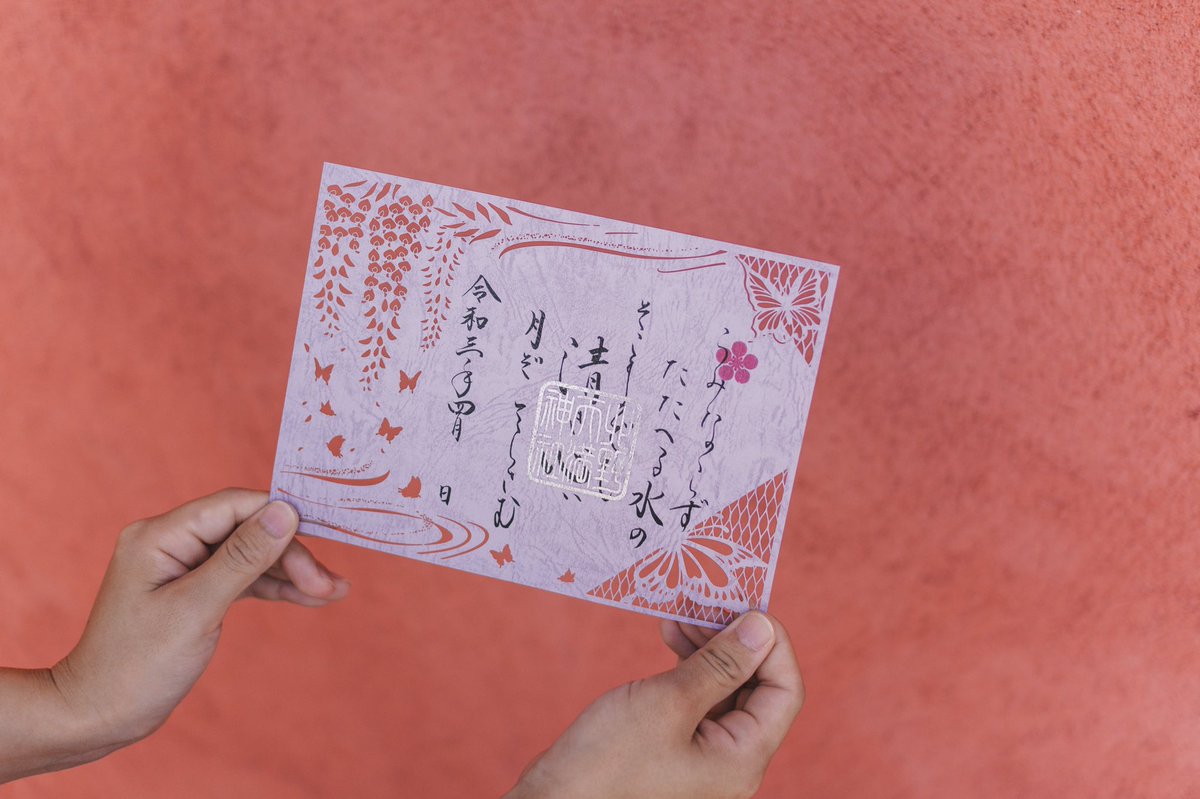 うみならず
たたへる水の
そこまでに
清き
月ぞてらさむ
令和三年四月
日
北野
天満
神社